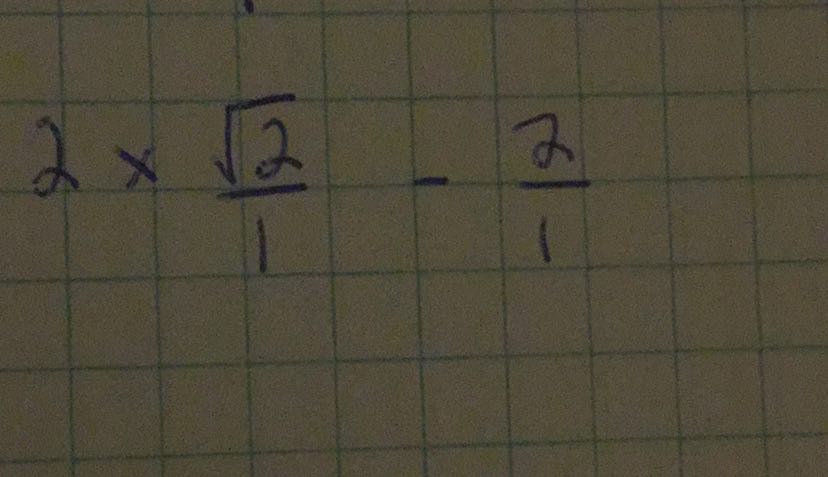 2 × √2/1 - 2/1